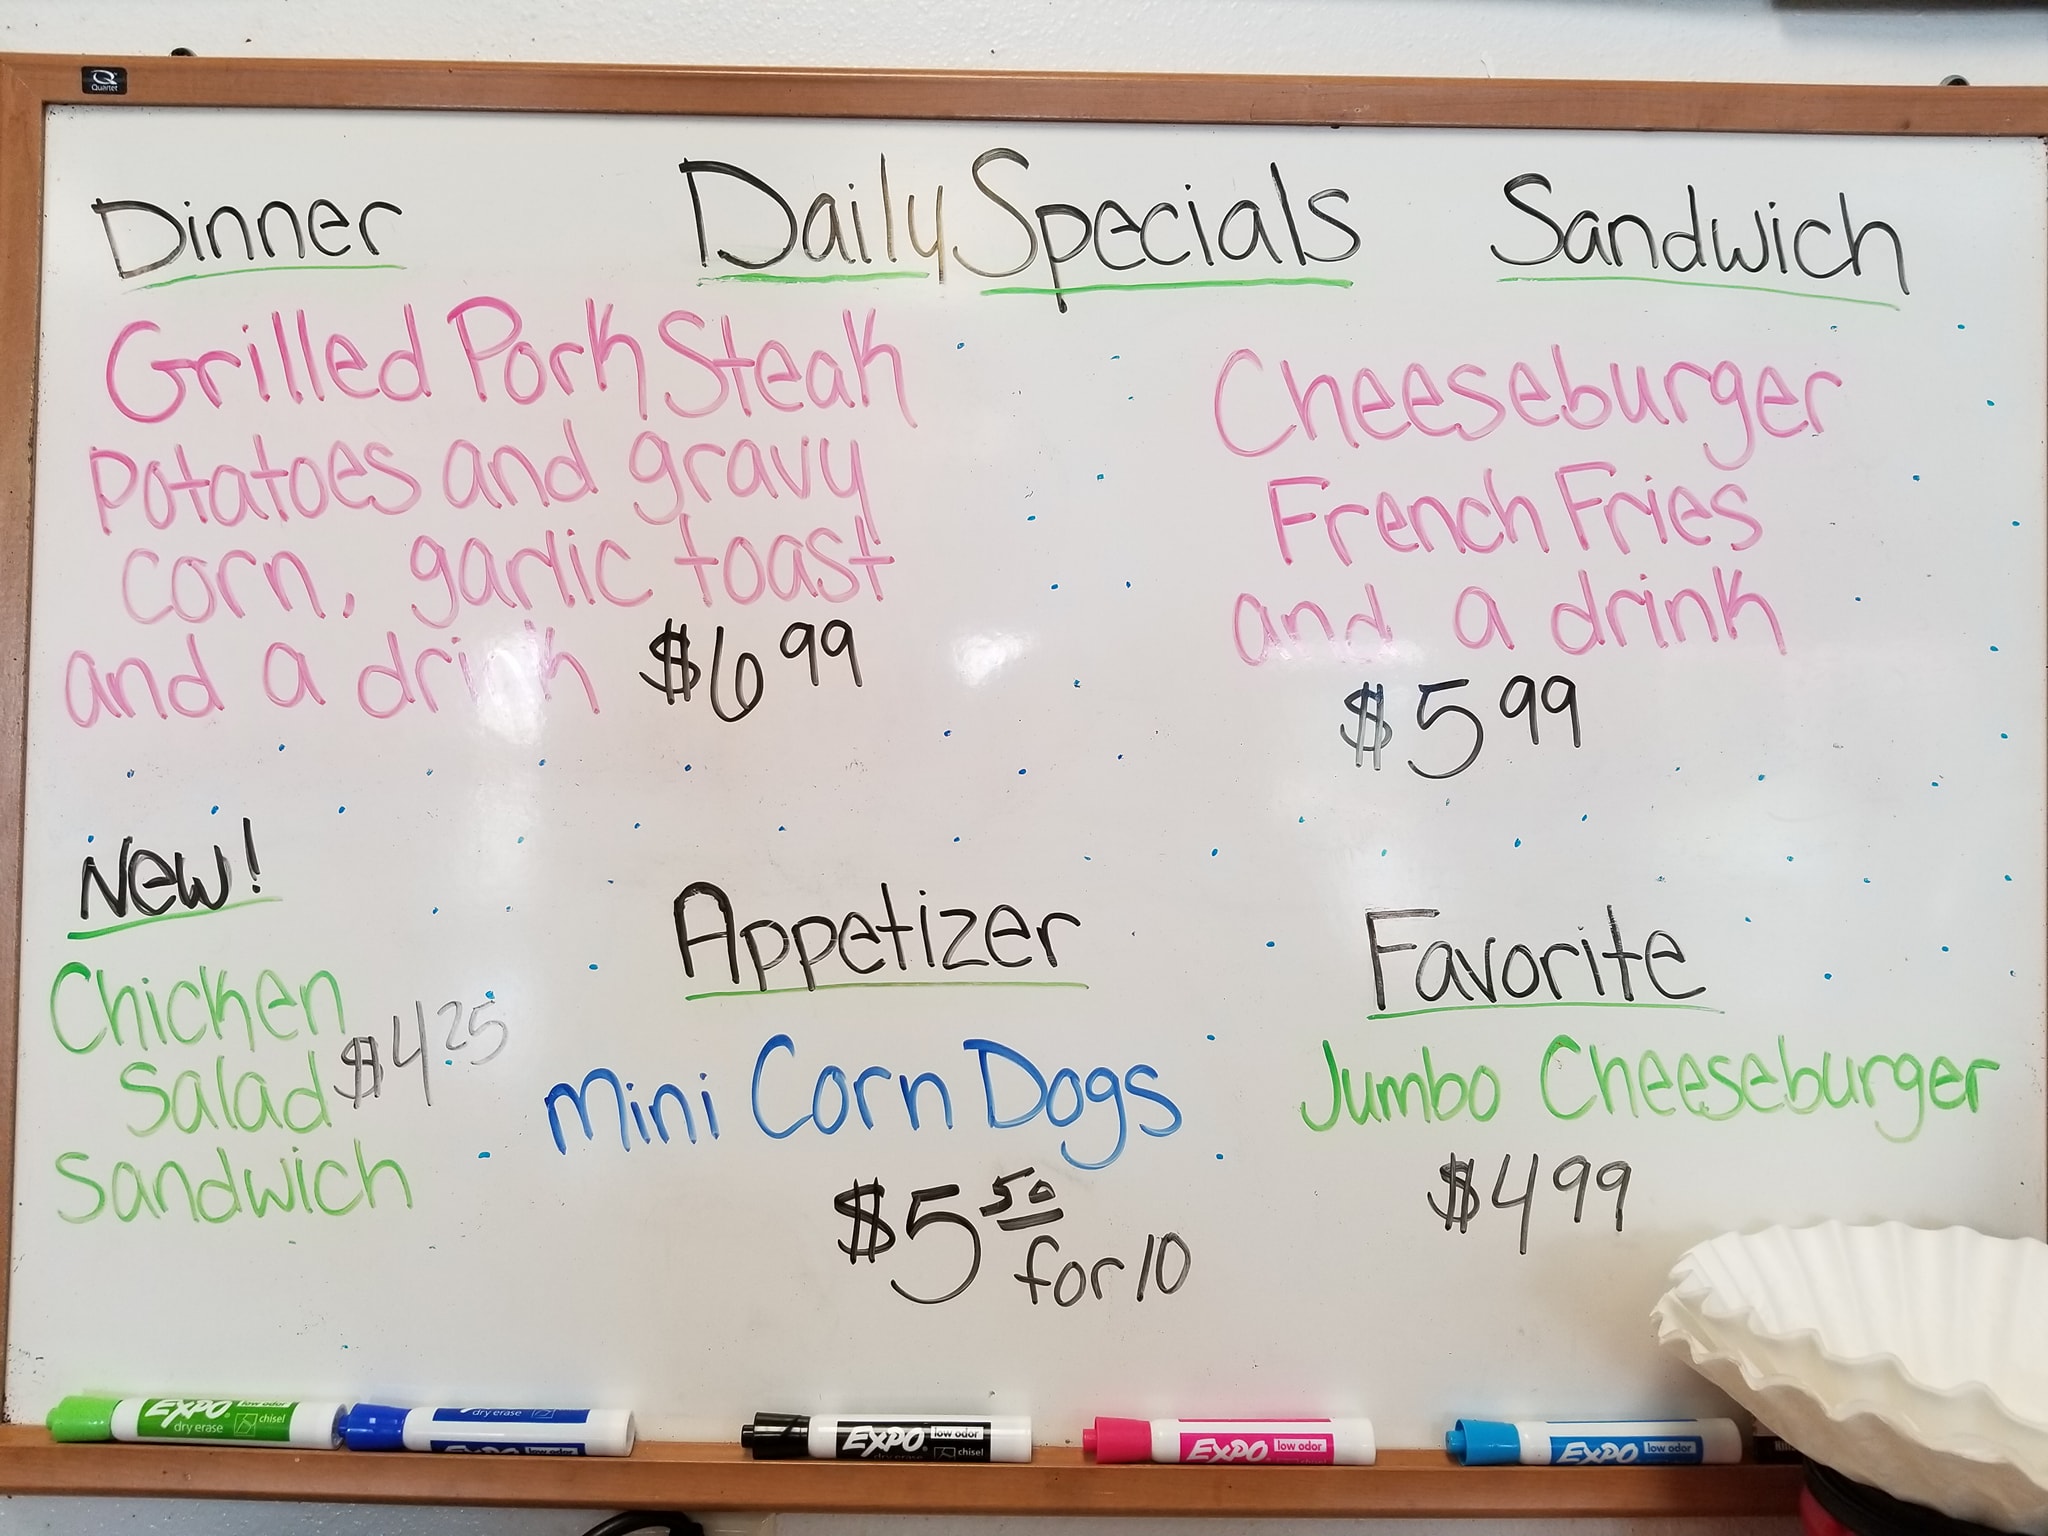 Q
Quartet
Daily Specials
Dinner
Grilled Pork Steak
Potatoes and gravy
corn, garlic toast
and a drink $6 99
Sandwich
Cheeseburger
French Fries
and a drink
$5 99
New!
Chicken
Salad $4 25
Sandwich
Appetizer
Mini Corn Dogs
$5 50
for 10
Favorite
Jumbo Cheeseburger
$4 99
EXPO low odor
dry erase chisel
dry erase
low odor
EXPO low odor
dry erase chisel
EXPO low odor
EXPO low odor